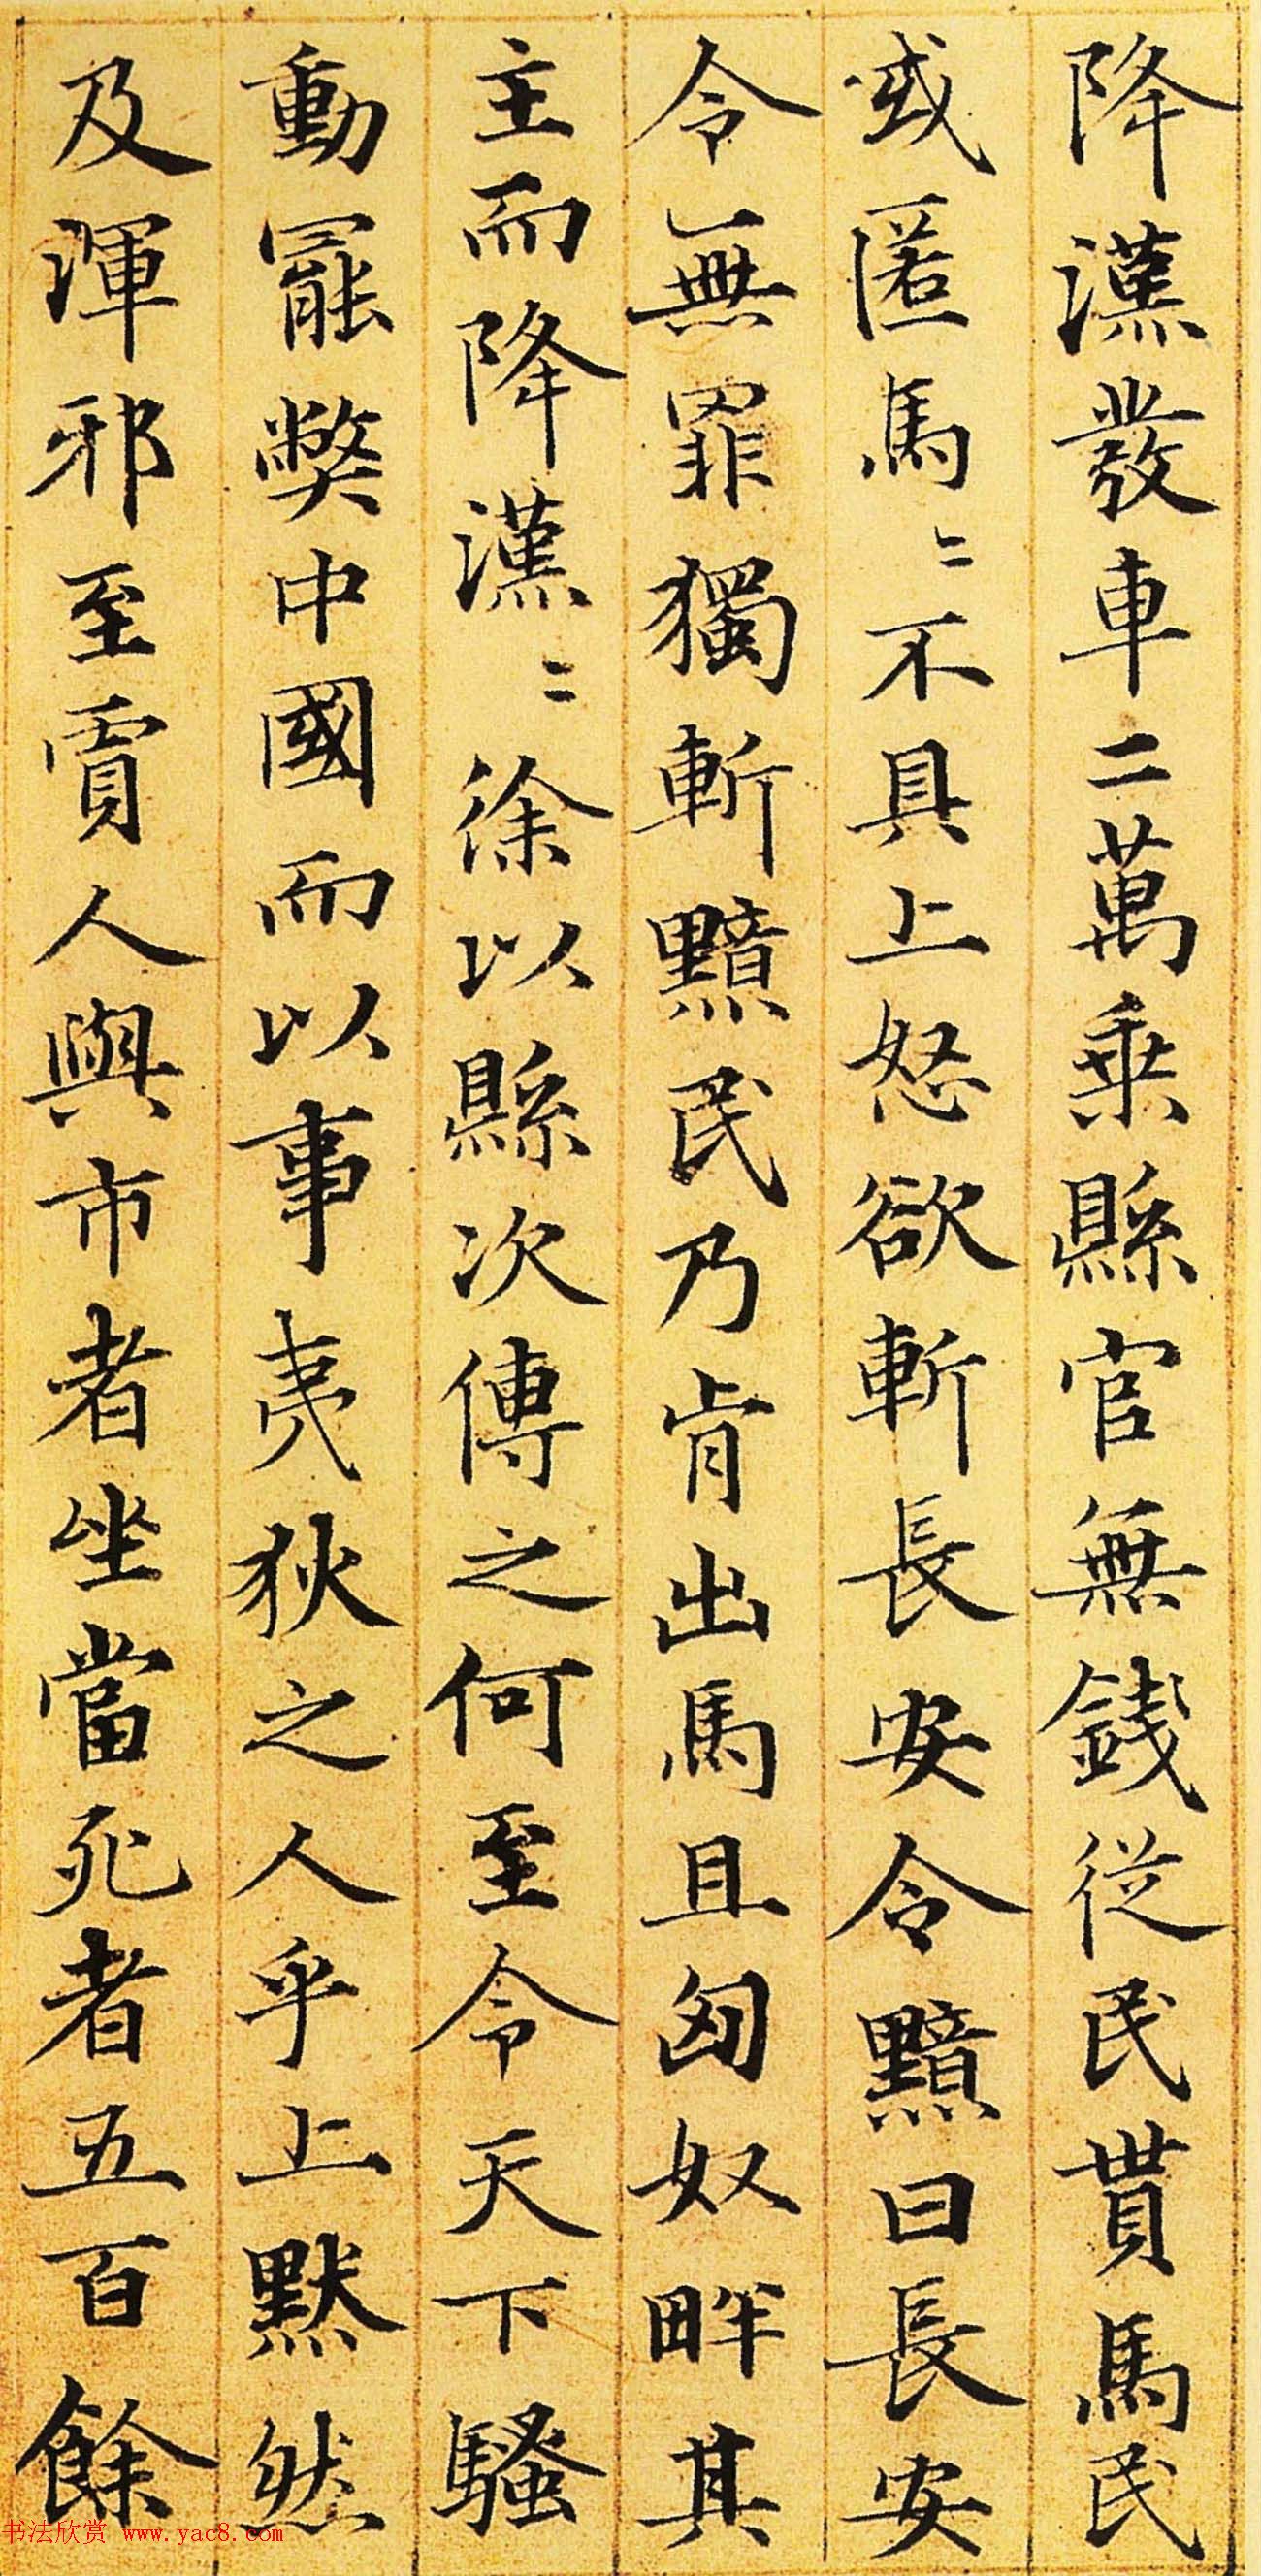 降漢發車二萬乗縣官無錢従民貰馬民
或匿馬〻不具上怒欲斬長安令黯曰長安
令無罪獨斬黯民乃肯出馬且匈奴畔其
主而降漢〻徐以縣次傳之何至令天下騷
動罷獘中國而以事夷狄之人乎上黙然
及渾邪至賈人與市者坐當死者五百餘
书法欣赏 www.yac8.com